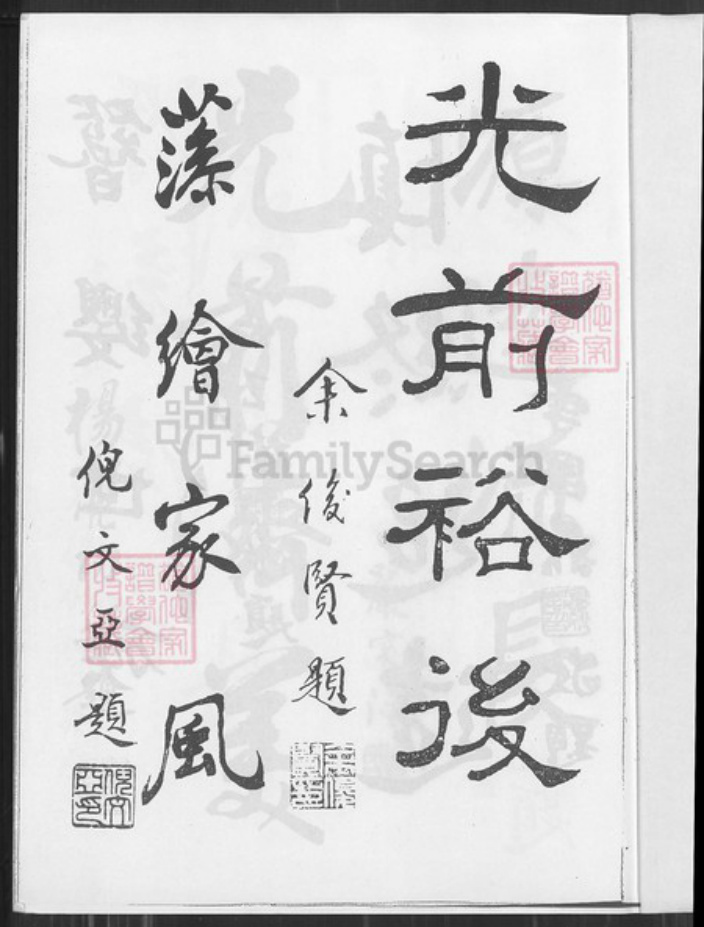 光前裕後
余俊賢題
藻繪家風
倪文亞題
倪文亞印
FamilySearch